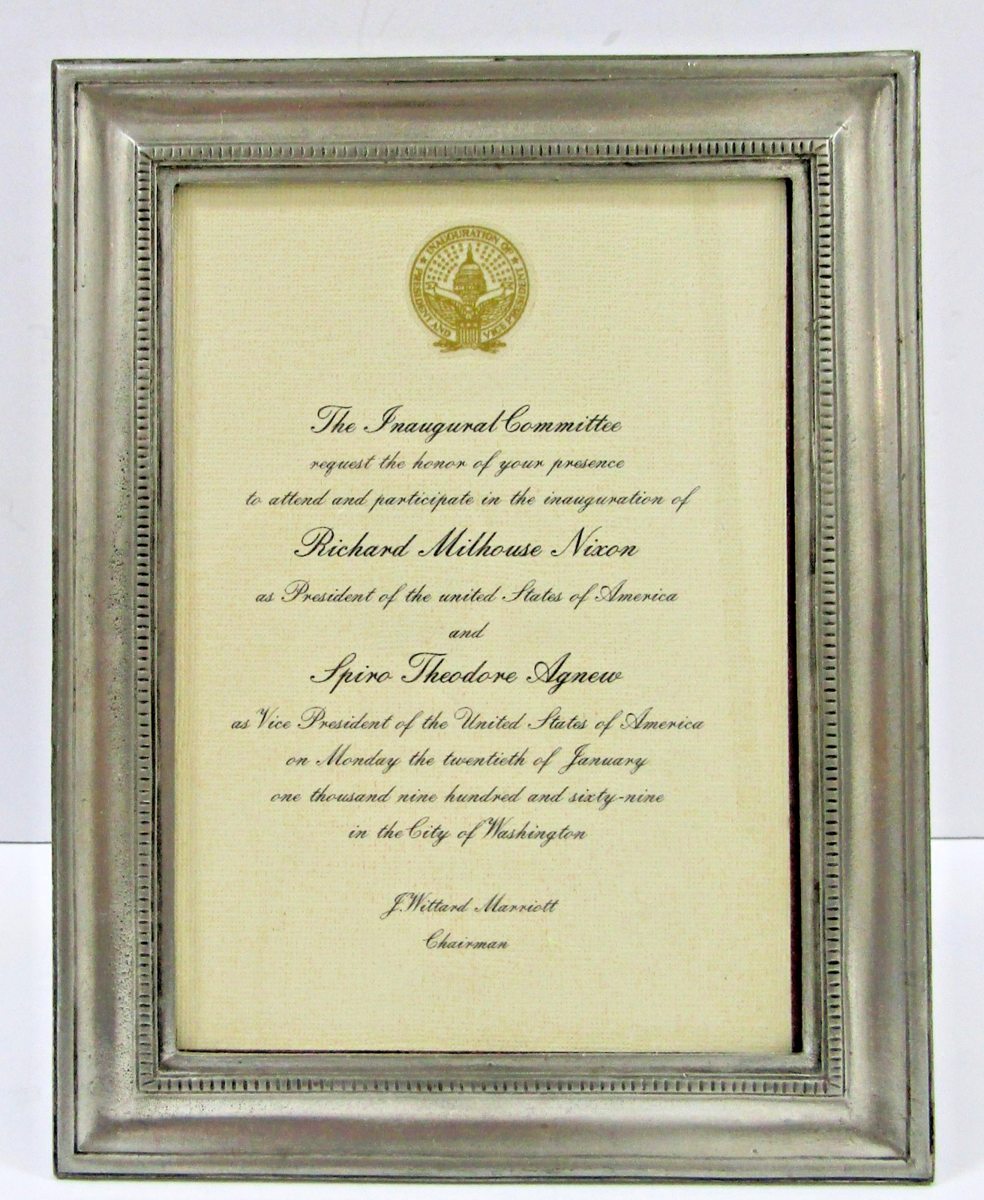 INAUGURATION OF
PRESIDENT AND VICE PRESIDENT
The Inaugural Committee
request the honor of your presence
to attend and participate in the inauguration of
Richard Milhouse Nixon
as President of the united States of America
and
Spiro Theodore Agnew
as Vice President of the United States of America
on Monday the twentieth of January
one thousand nine hundred and sixty-nine
in the City of Washington
J. Wittard Marriott
Chairman